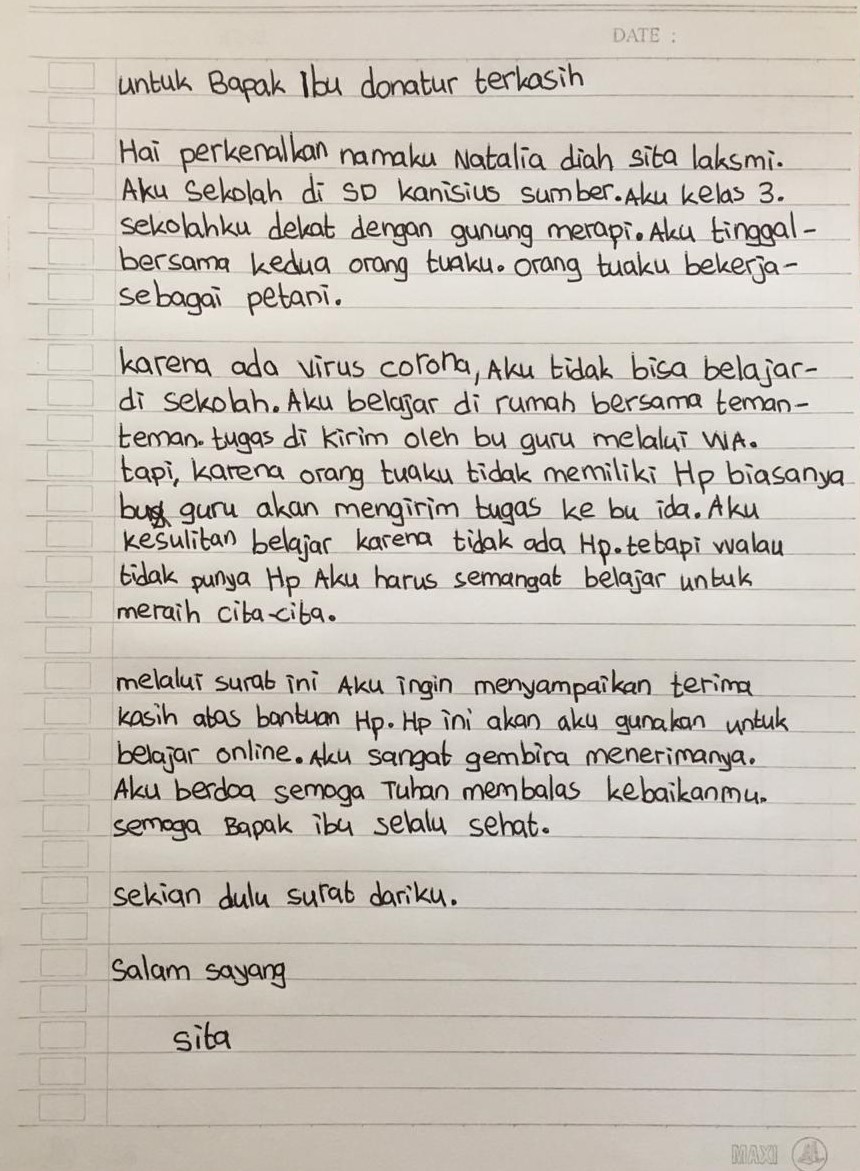 DATE :
untuk Bapak Ibu donatur terkasih
Hai perkenalkan namaku Natalia diah sita laksmi.
Aku Sekolah di SD kanisius sumber. Aku kelas 3.
sekolahku dekat dengan gunung merapi. Aku tinggal-
bersama kedua orang tuaku. orang tuaku bekerja-
sebagai petani.
karena ada virus corona, Aku tidak bisa belajar-
di sekolah. Aku belajar di rumah bersama teman-
teman. tugas di kirim oleh bu guru melalui WA.
tapi, karena orang tuaku tidak memiliki Hp biasanya
bu guru akan mengirim tugas ke bu ida. Aku
kesulitan belajar karena tidak ada Hp. tetapi walau
tidak punya Hp Aku harus semangat belajar untuk
meraih cita-cita.
melalui surat ini Aku ingin menyampaikan terima
kasih atas bantuan Hp. Hp ini akan aku gunakan untuk
belajar online. Aku sangat gembira menerimanya.
Aku berdoa semoga Tuhan membalas kebaikanmu.
semoga Bapak ibu selalu sehat.
sekian dulu surat dariku.
Salam sayang
sita
MAXI